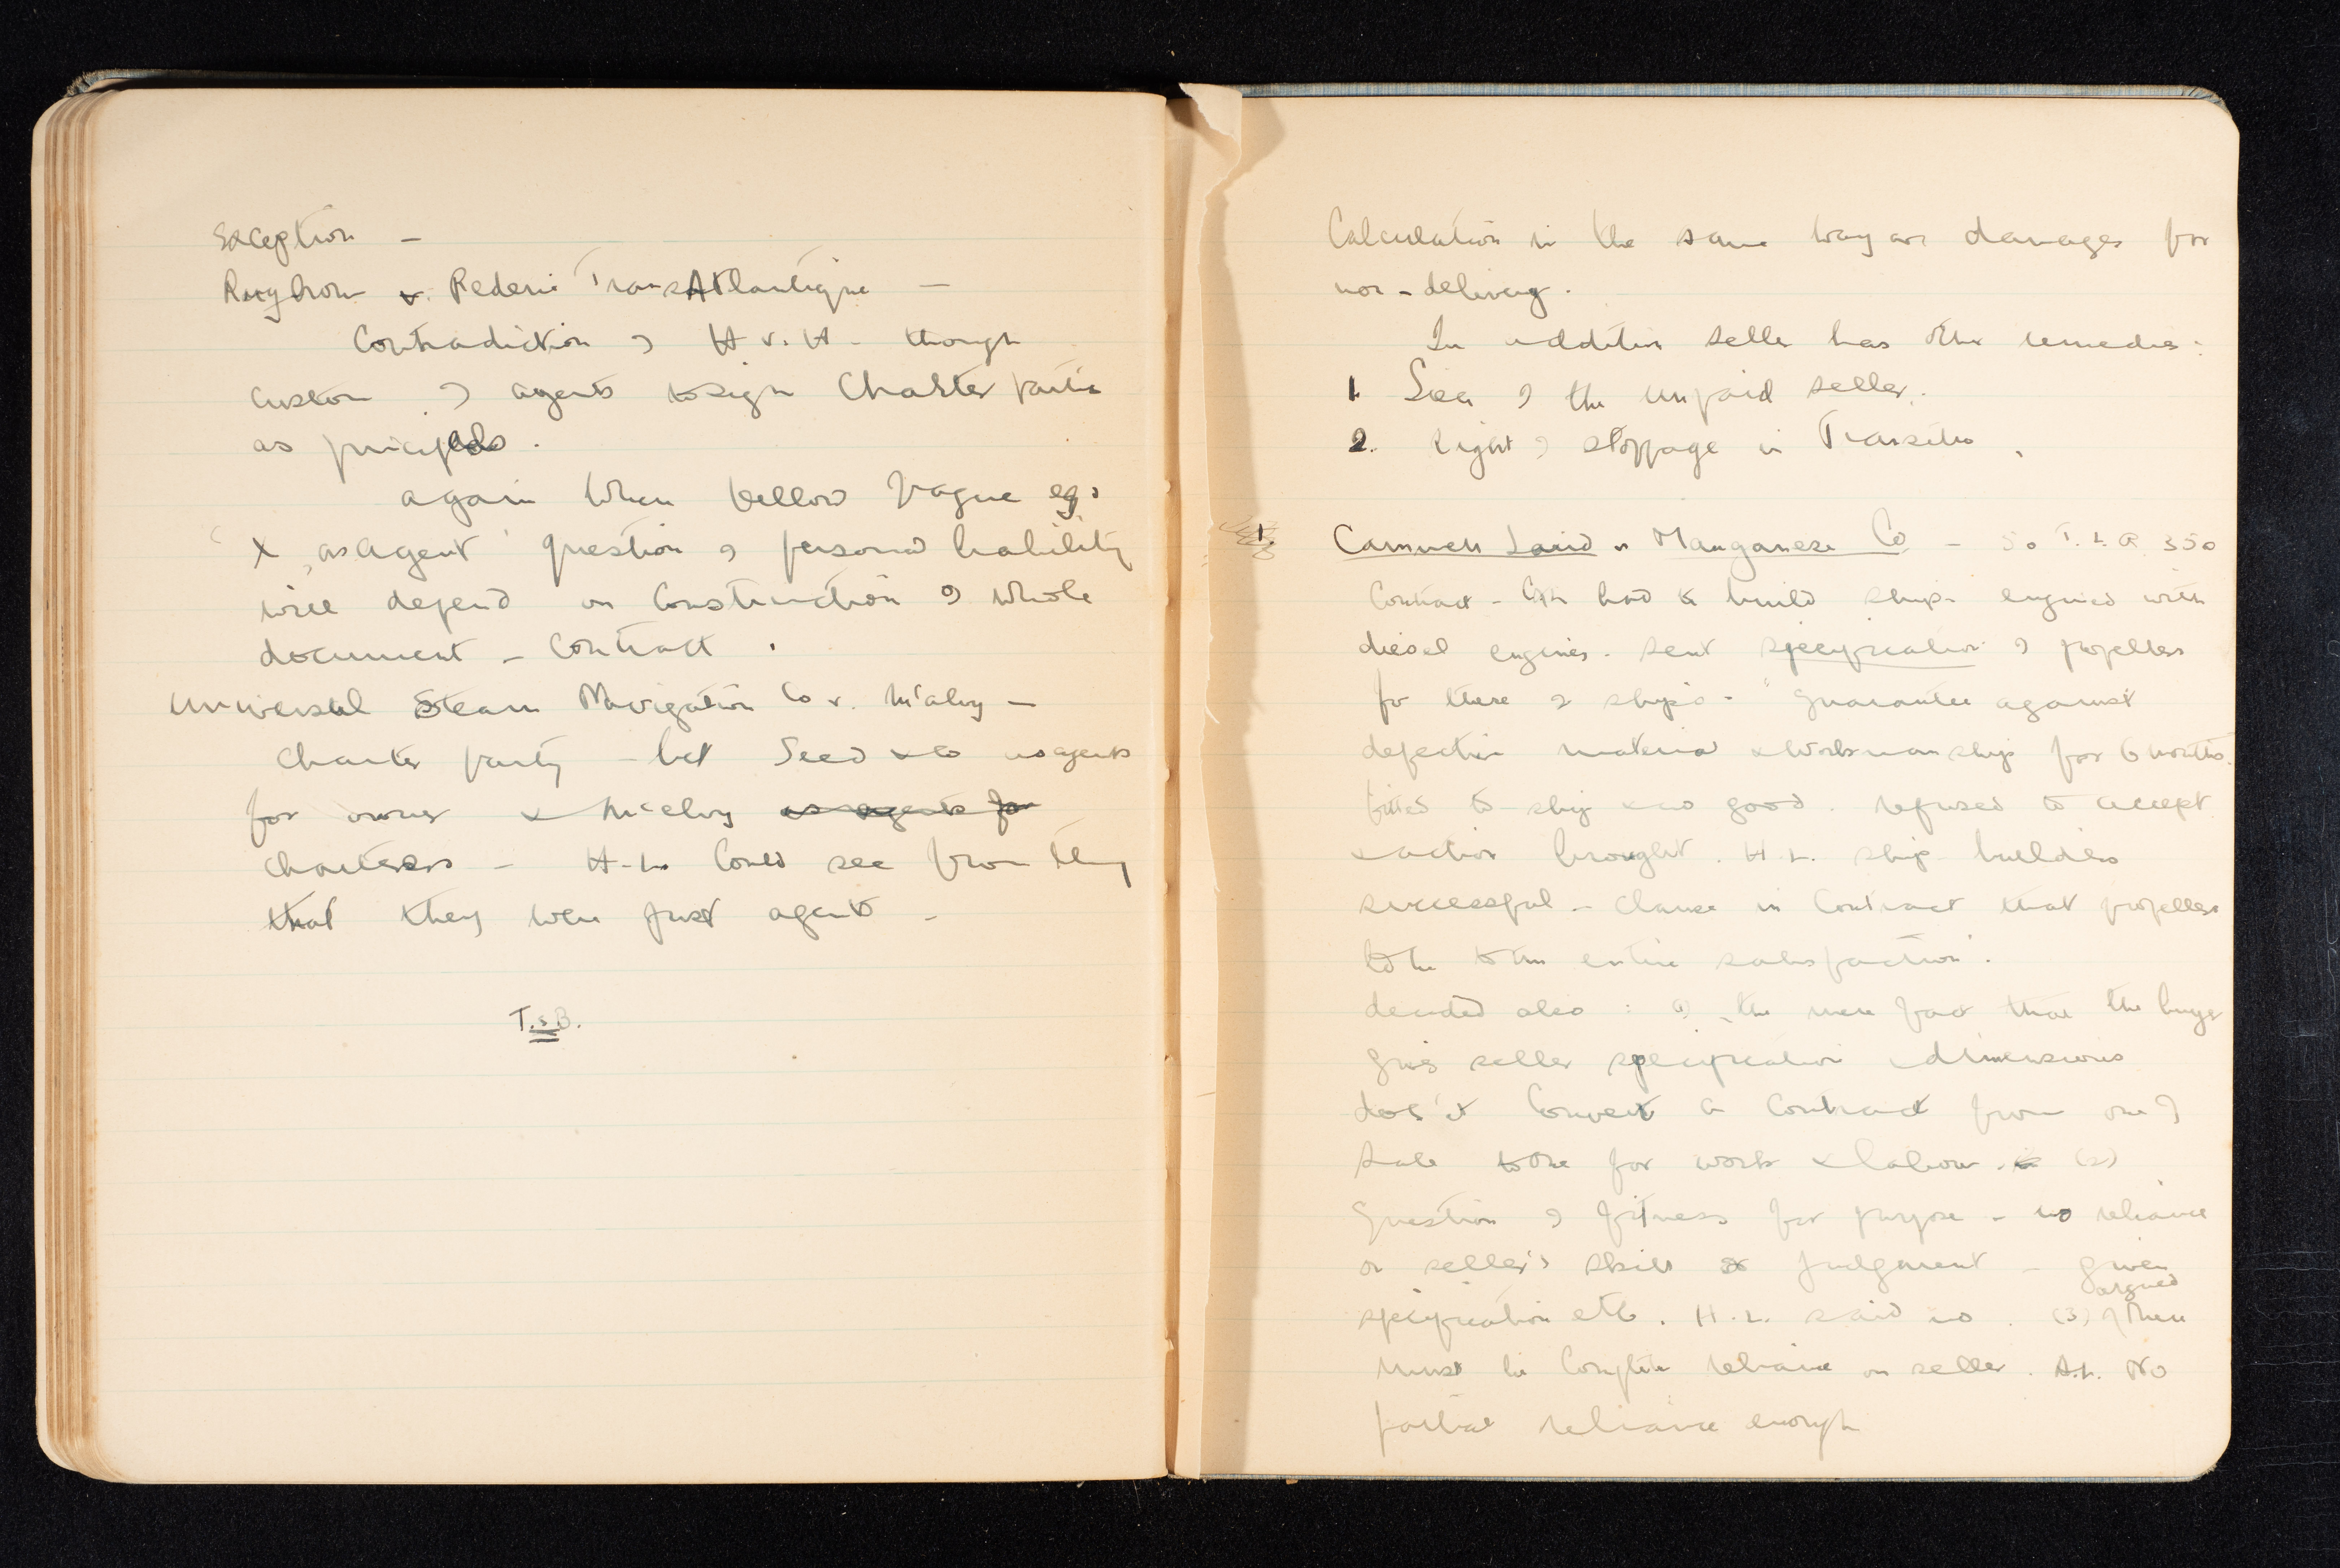 Exception –
v. Rederi TransAtlantique –
Contradiction of H v. H – though
custom of agents to sign Charter partie
as principals.
again when fellow vague eg:
"X, as agent" question of personal liability
will depend on Construction of whole
document – Contract.
Universal Steam Navigation Co v. McKelvy –
Charter party – bet Seed & Co as agents
for owner & McKelvy as agents for
Charterers – H.L. Could see from
that they were just agents –
T.s.B.
Calculation in the same way as damages for
non-delivery.
In addition seller has other remedies:
1. Lien of the unpaid seller.
2. Right of stoppage in Transitu.
1. Cammell Laird v Manganese Co – 50 T.L.R. 350
Contract – had to build ship – engined with
diesel engines. Sent specification of propellers
for these 2 ships – "guarantee against
defective material & workmanship for 6 months.
fitted to ship & no good. refused to accept
& action brought. H.L. ship builders
successful – Clause in Contract that propellers
to be to entire satisfaction.
decided also: (1) the mere fact that the buyer
gives seller specification & dimensions
does't Convert a Contract from one of
Sale to one for work & labour. (2)
Question of fitness for purpose – no reliance
on seller's skill or judgment – given
specification etc. H.L. said no. (3) argued there
must be Complete reliance on seller. H.L. No
partial reliance enough